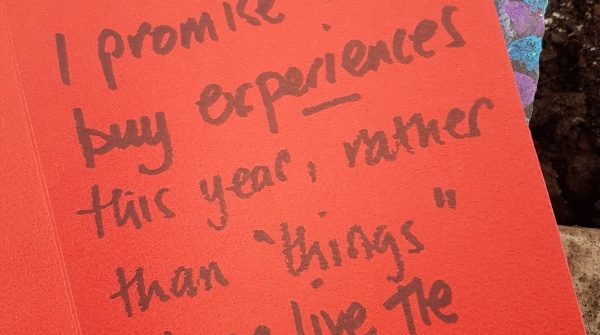 I promise
buy experiences
this year, rather
than "things"
live the